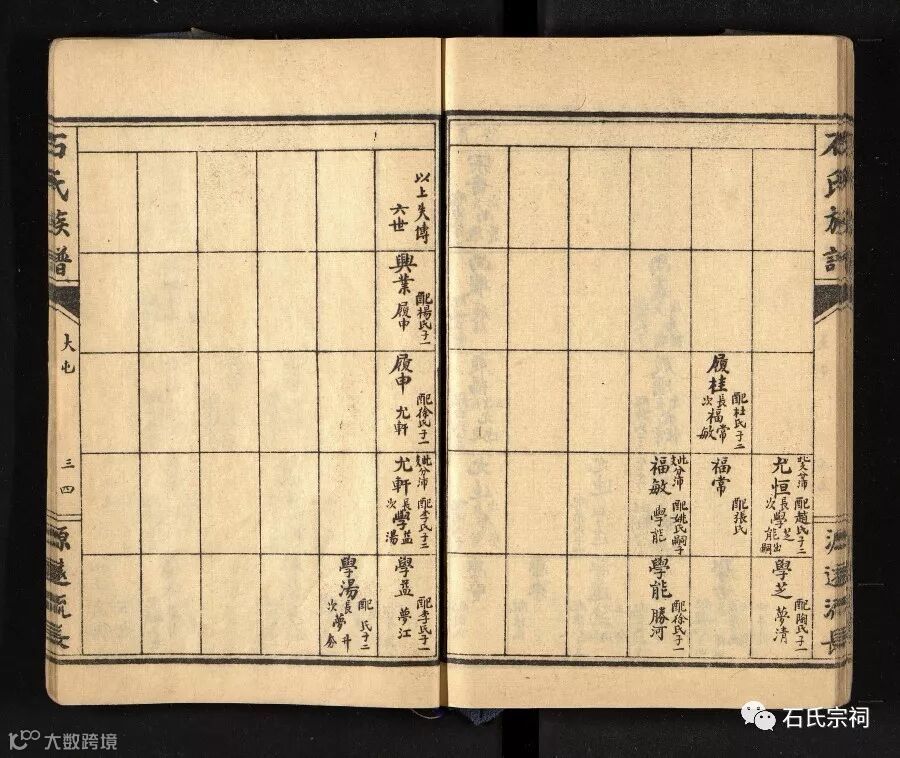 石氏族譜
源遠流長
履桂
配杜氏子二
長福常
次福敏
尤恒
此分沛
配趙氏子二
長學芝
次學能出嗣
福常
配張氏
福敏
此分沛
配姚氏嗣子
學能
學芝
配陶氏子一
夢清
學能
配徐氏子一
勝河
以上失傳
六世
興業
配楊氏子一
履申
履申
配徐氏子一
尤軒
尤軒
此分沛
配李氏子二
長學益
次學湯
學益
配李氏子一
夢江
學湯
配 氏子二
長夢升
次夢
石氏族譜
大屯
三四
源遠流長
石氏宗祠
大数跨境